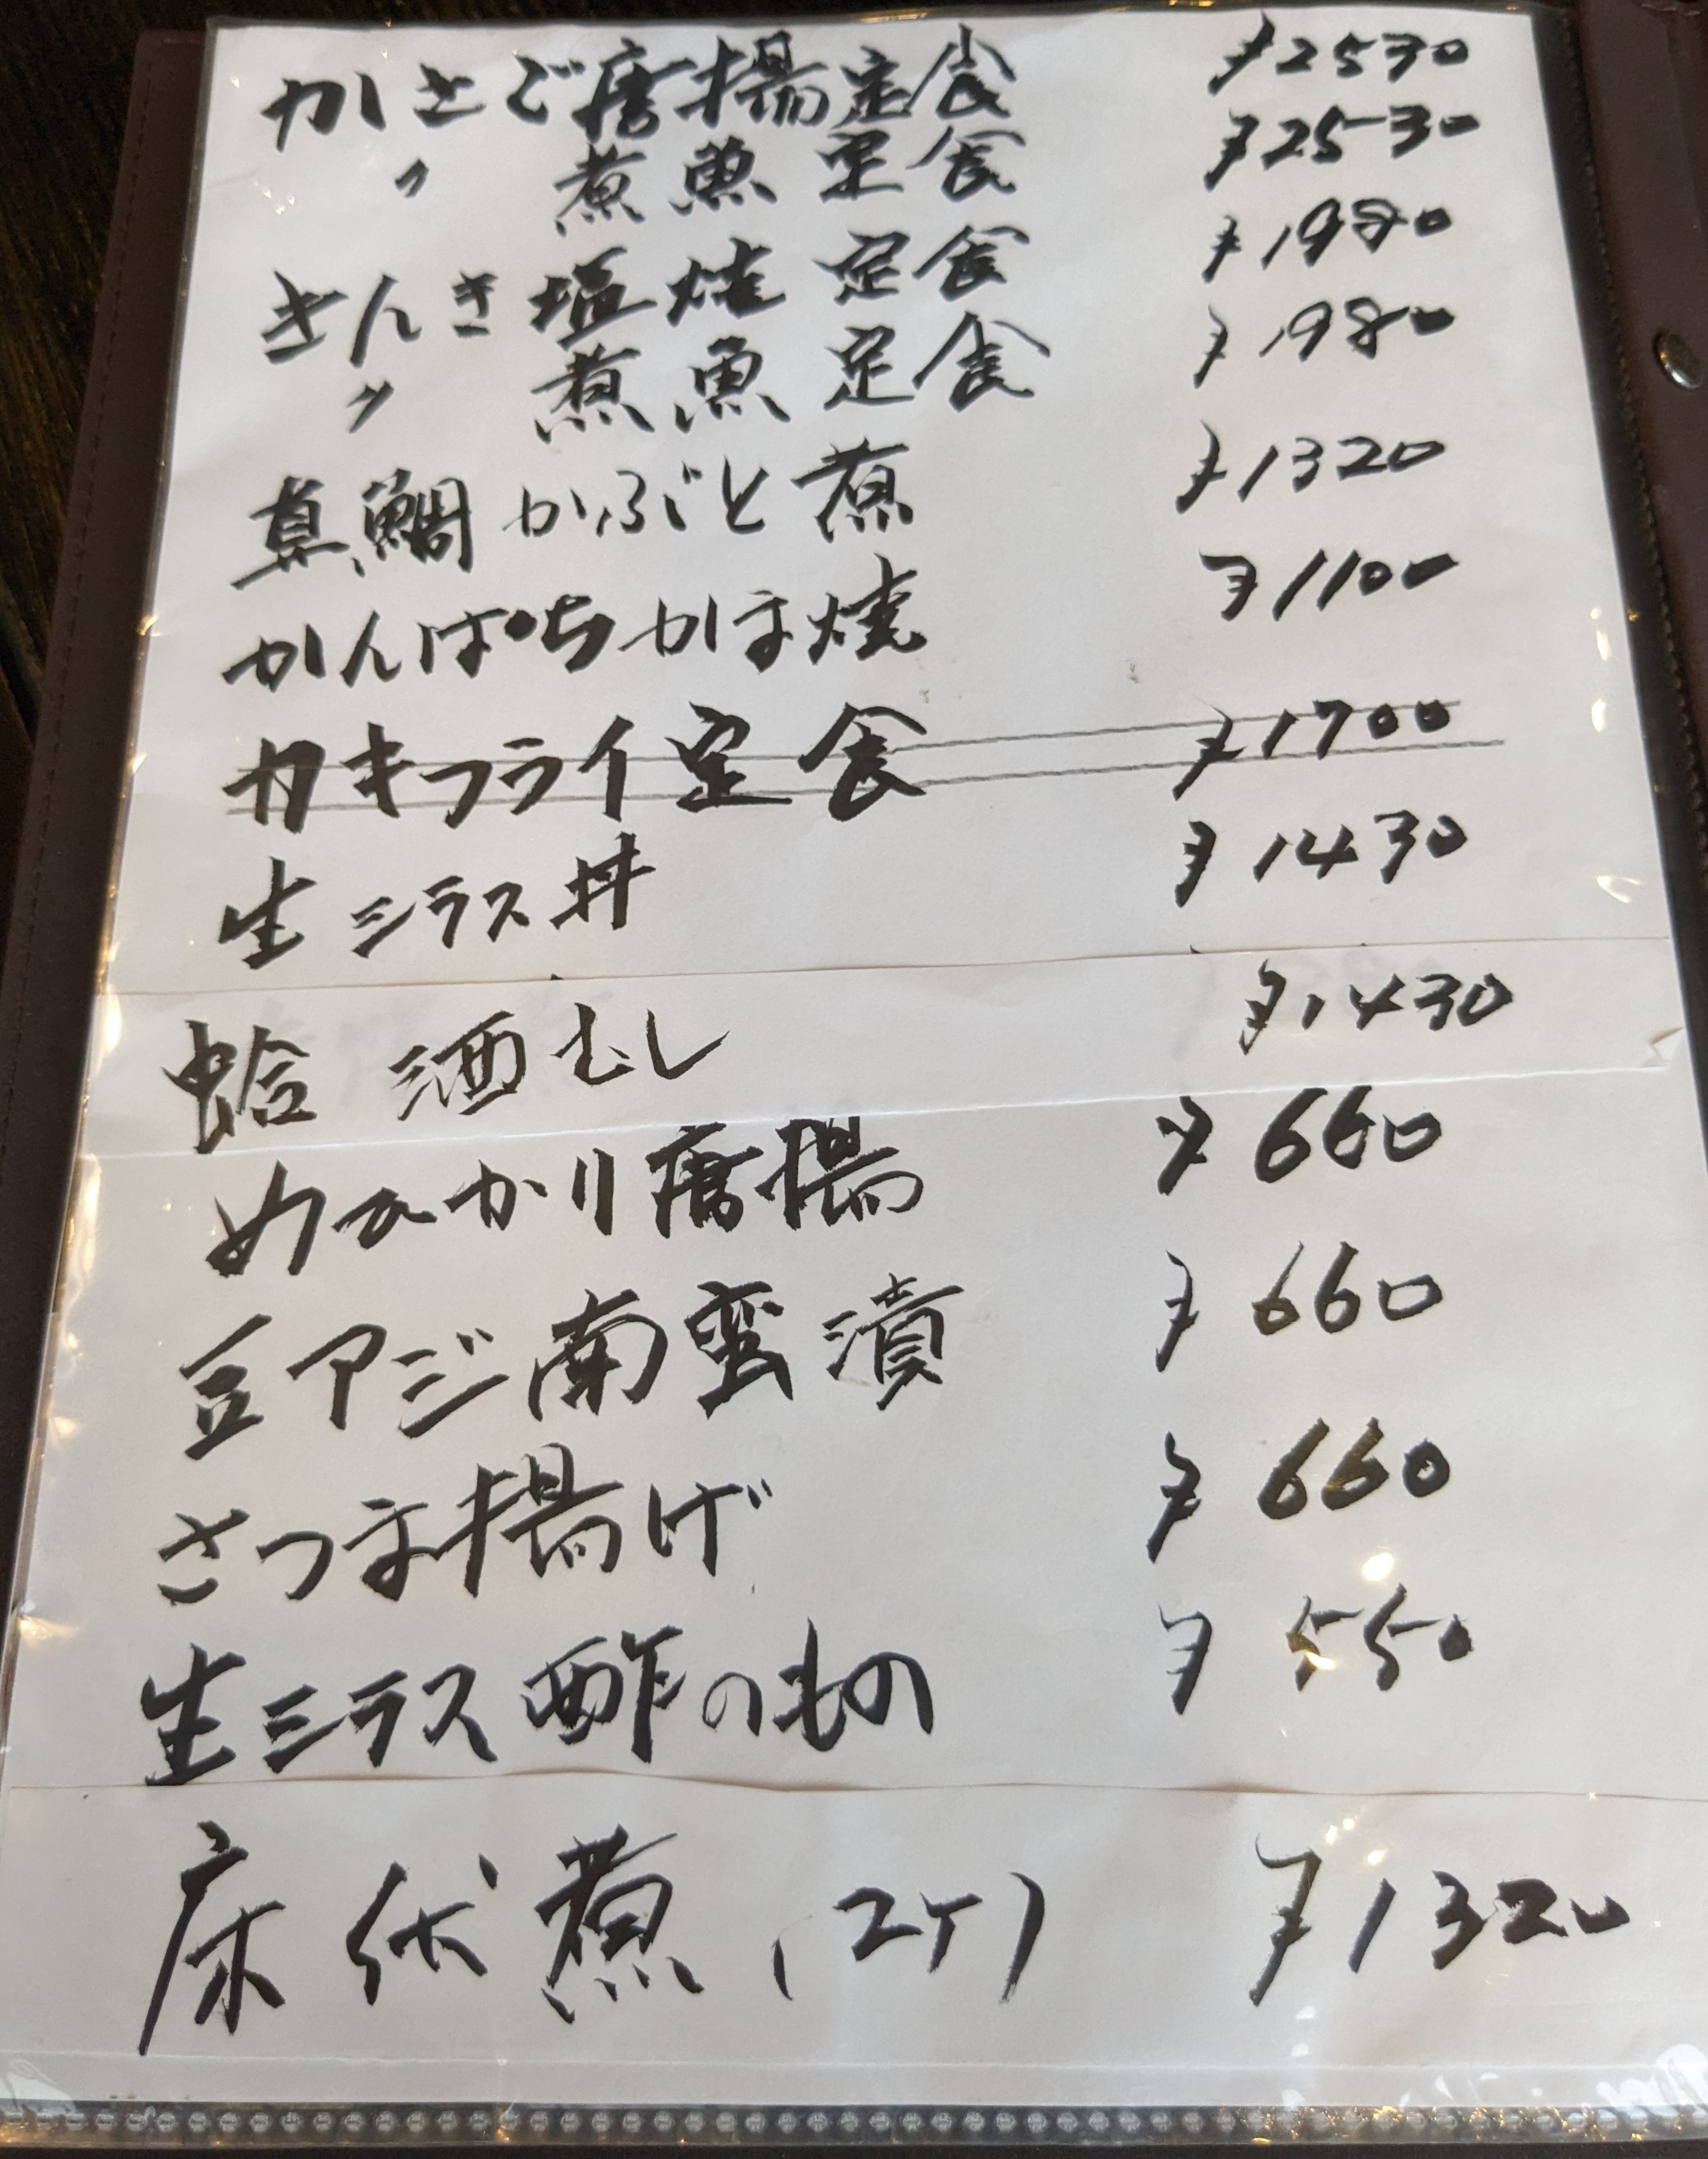 かさご唐揚定食 ¥2530
〃 煮魚定食 ¥2530
きんき塩焼定食 ¥1980
〃 煮魚定食 ¥1980
真鯛かぶと煮 ¥1320
かんぱちかま焼 ¥1100
カキフライ定食 ¥1700
生シラス丼 ¥1430
蛤 酒むし ¥1430
めひかり唐揚 ¥660
豆アジ南蛮漬 ¥660
さつま揚げ ¥660
生シラス酢のもの ¥550
床伏煮(2ケ) ¥1320